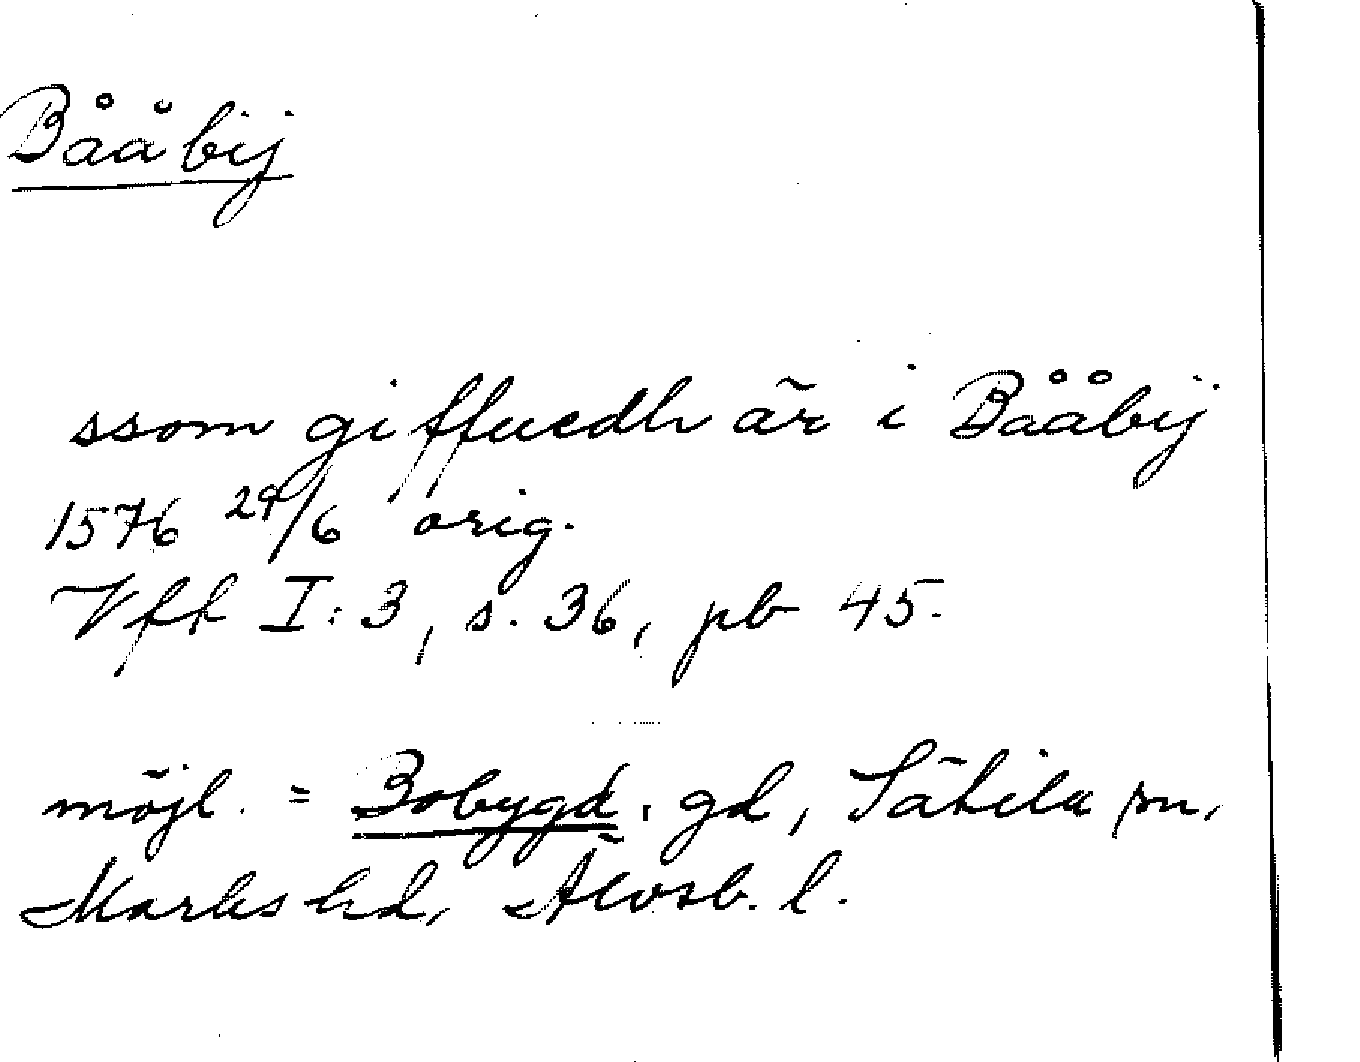 Bååbÿ
ssom giffuedh är i Bååbÿ
1576 29/6 orig.
Vfk I:3, s. 36, pb 45.
möjl. = Bobygd, gd, Sätila sn,
Marks hd, Älvsb. l.